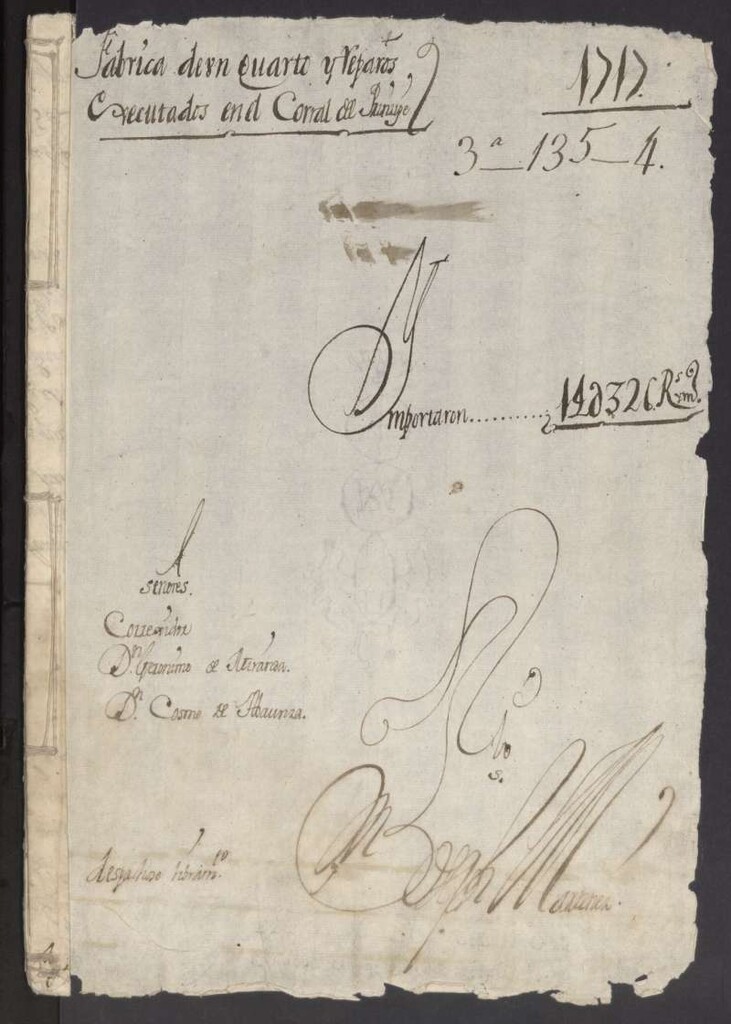 Fabrica de vn Quarto y reparos
Executados en el Corral del Principe
1717.
3ª — 135 — 4.
Ymportaron.......... 14U326 Rs vn.
A
señores.
Corregidor
Dn Geronimo de Miranda.
Dn Cosme de Abaunza.
Ro
bo
s.
Dn Joseph M
despachado libramto